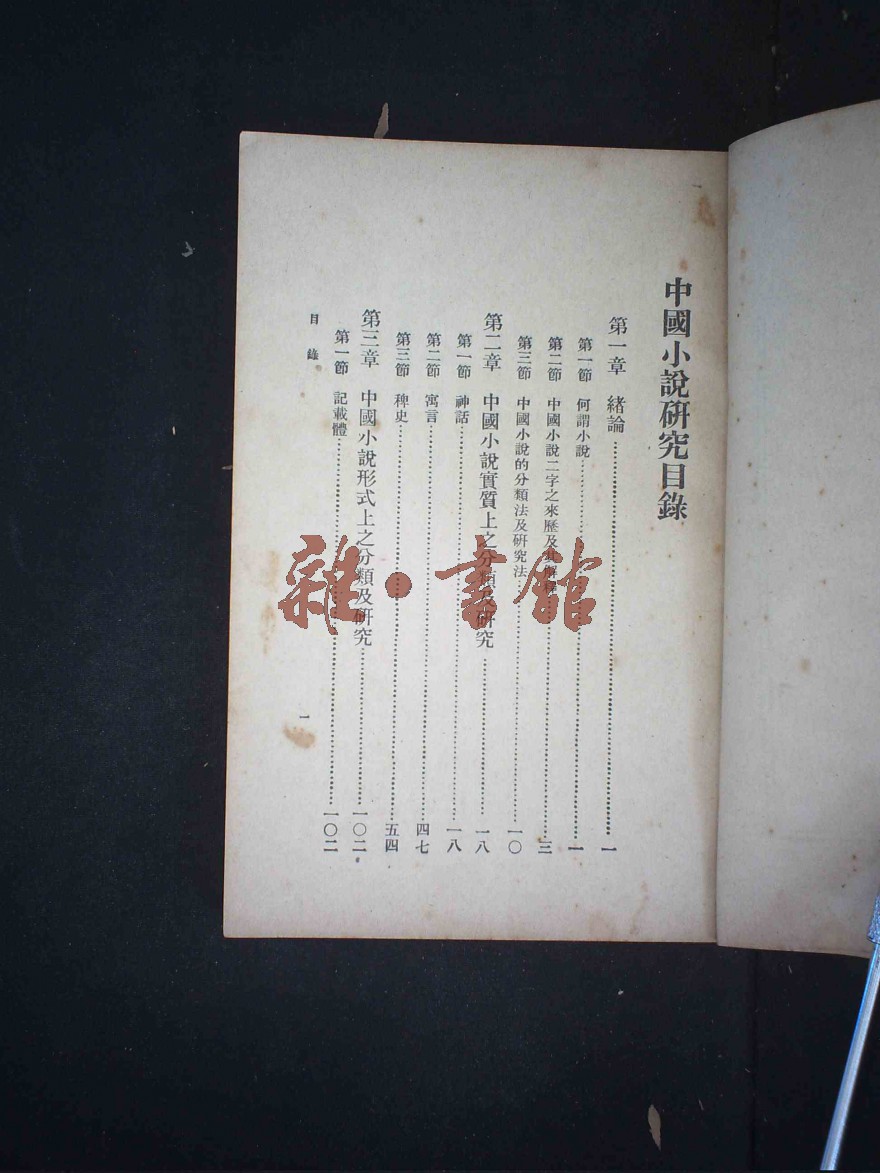 中國小說研究目錄
第一章 緒論……一
第一節 何謂小說……一
第二節 中國小說二字之來歷及其……三
第三節 中國小說的分類法及研究法……一〇
第二章 中國小說實質上之分類及研究……一八
第一節 神話……一八
第二節 寓言……四七
第三節 稗史……五四
第三章 中國小說形式上之分類及研究……一〇二
第一節 記載體……一〇二
目錄
一
雜·書館